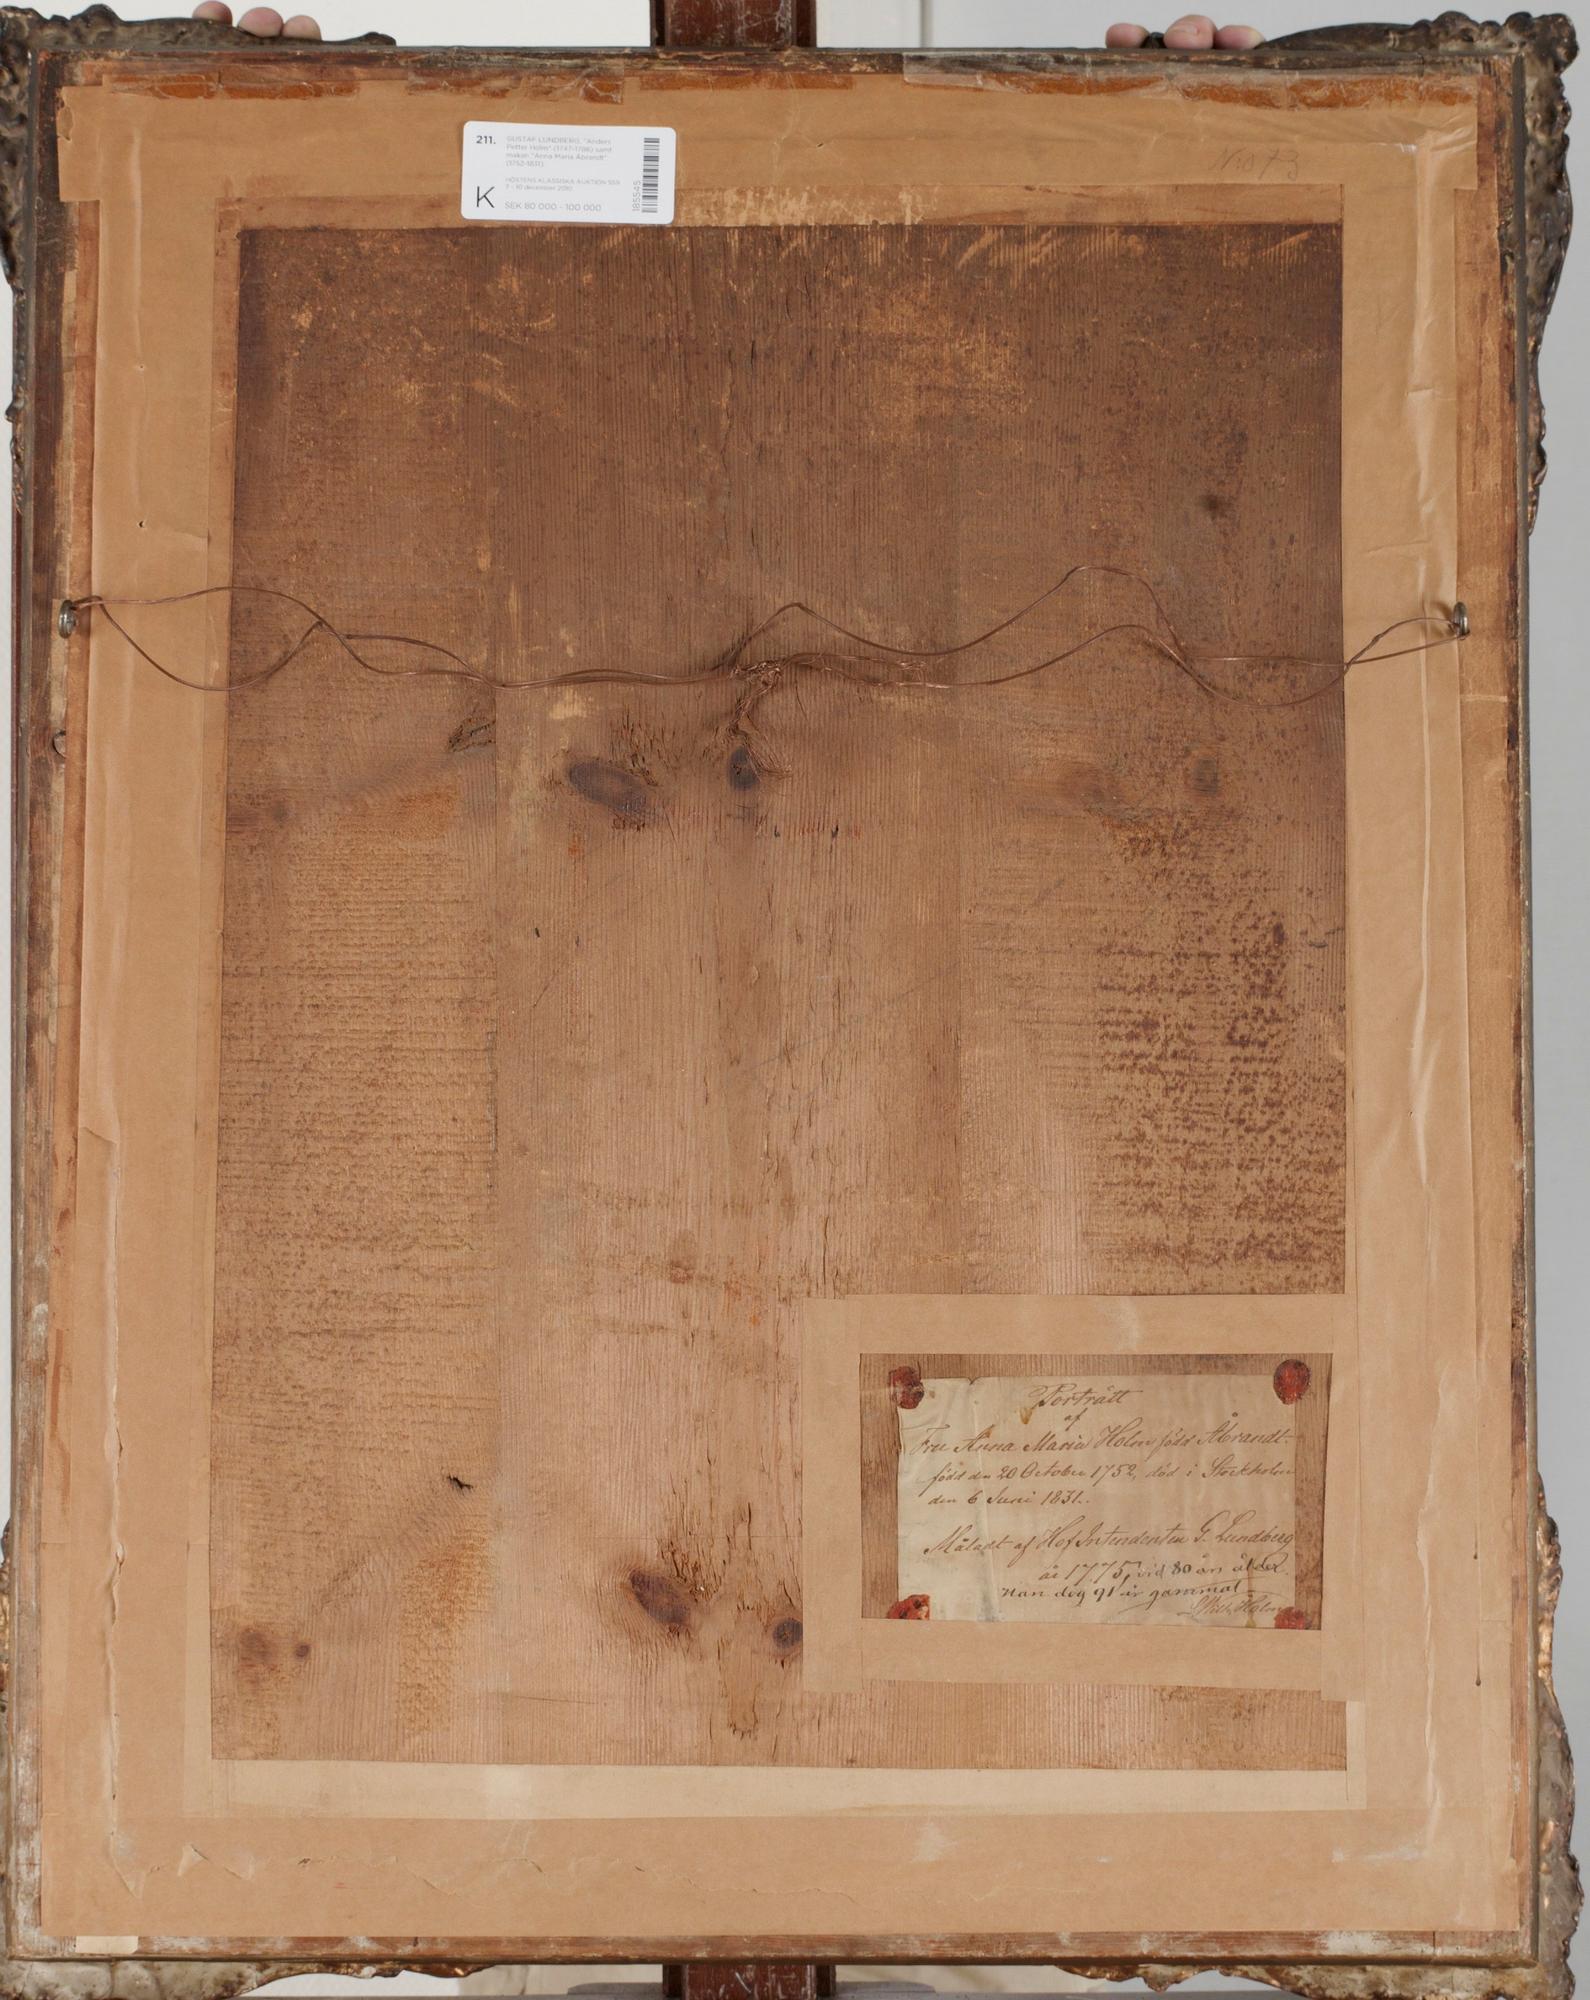 211.
GUSTAF LUNDBERG, "Anders
Petter Holm" (1747-1786) samt
makan "Anna Maria Åbrandt"
(1752-1831).
HÖSTENS KLASSISKA AUKTION 559
7 - 10 december 2010
K
SEK 80 000 - 100 000
185545
Porträtt
af
Fru Anna Maria Holm född Åbrandt.
född den 20 October 1752, död i Stockholm
den 6 Juni 1831.
Måladt af HofIntendenten G. Lundberg
år 1775, vid 80 års ålder.
Han dog 91 år gammal
Holm